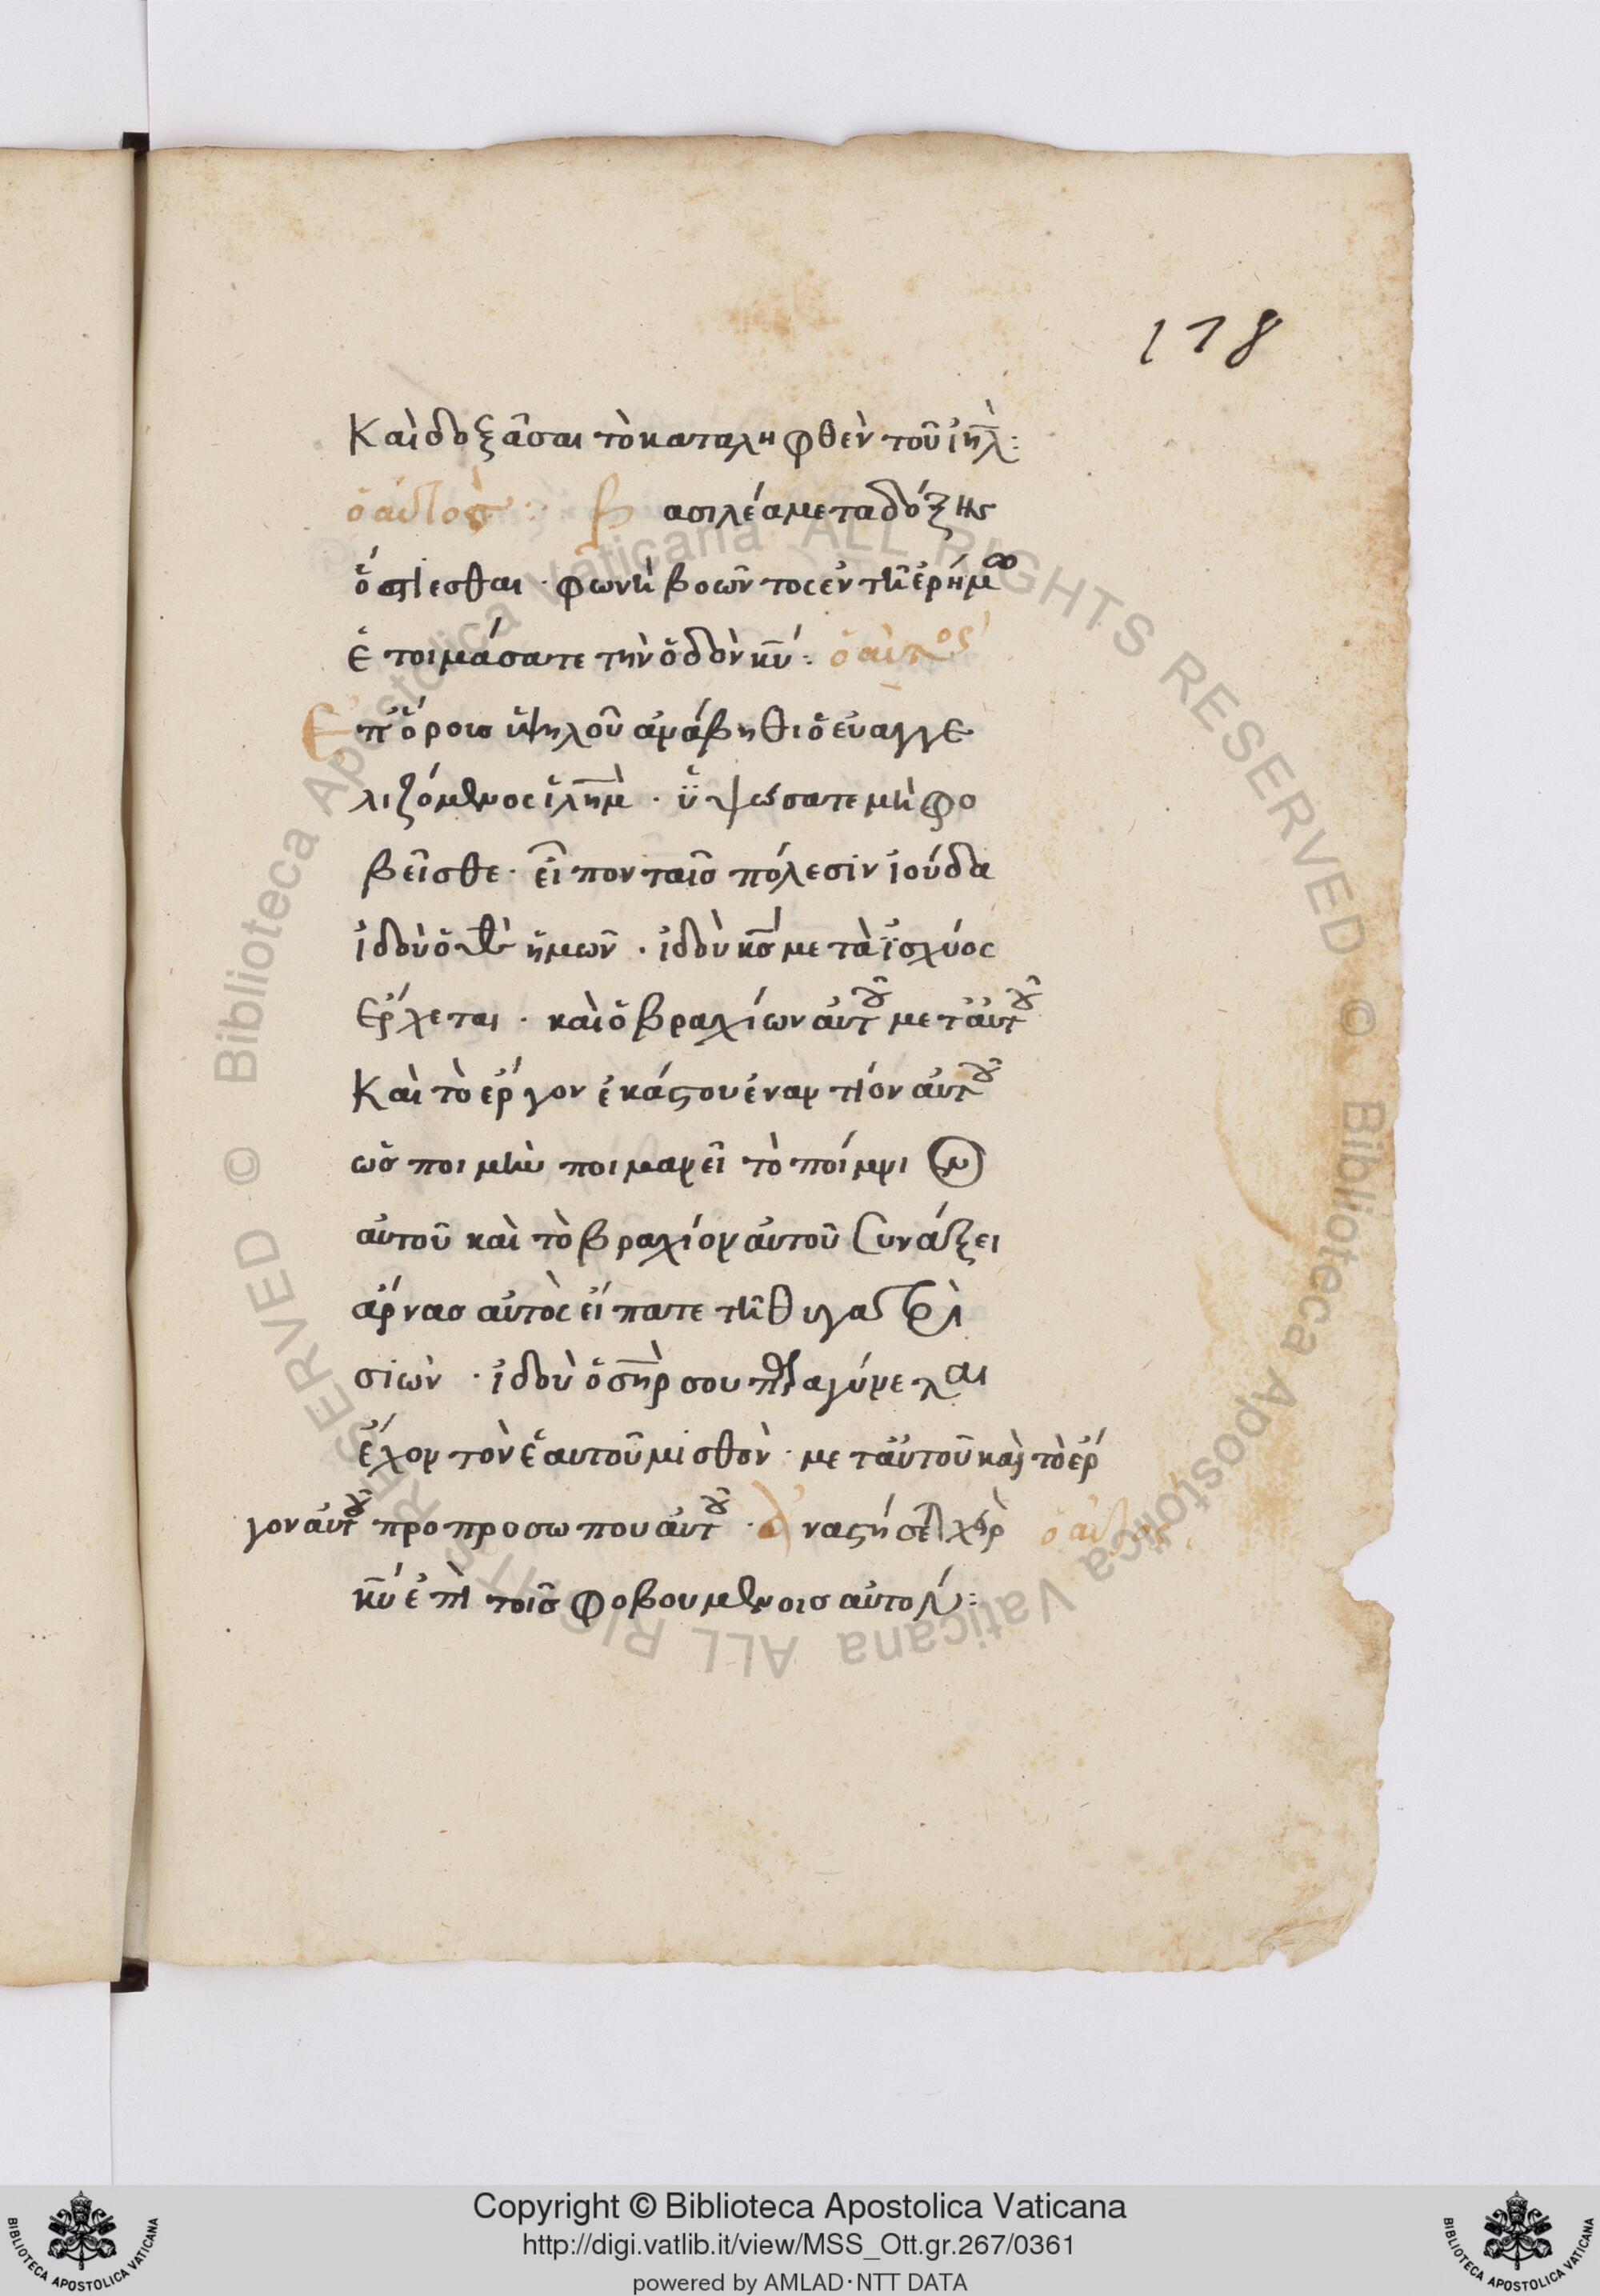 178
Καὶ δοξᾶσαι τὸ καταληφθὲν τοῦ ἰη̅λ̀:
ὁ αὐτὸσ: Βασιλέα μετα δόξης
ὄψεσθαι · φωνὴ βοῶντος ἐν τῆ ἐρήμω
ἑτοιμάσατε τὴν ὁδὸν κ̅ύ: ὁ αὐτος
Ἐπ' ὄροισ ὑψηλοῦ ἀνάβηθι ὁ εὐαγγε
λιζόμενος ἱλ̅η̅μ̀ · ὑψώσατε μὴ φο
βεῖσθε · εἶπον ταῖσ πόλεσιν ἰούδα
ἰδοὺ ὁ ἡμῶν · ἰδοὺ κ̅σ̅ μετὰ ἰσχύος
ἔρχεται · καὶ ὁ βραχίων αὐτοῦ μετ' αὐτοῦ
Καὶ τὸ ἔργον ἑκάϛου ἐναντίον αὐτοῦ
ὡσ ποιμὴν ποιμανεῖ τὸ ποίμνιον
αὐτοῦ καὶ τὸ βραχίον αὐτοῦ συνάξει
ἄρνασ αὐτὸς εἴπατε τῆ θυγατρὶ
σιὼν · ἰδοὺ ὁ σ̅η̅ρ̀ σου παραγίνεται
ἔχον τὸν ἑαυτοῦ μισθὸν · μετ' αὐτοῦ καὶ τὸ ἔρ
γον αὐτοῦ προ προσωπου αὐτοῦ · ἀναϛήσει χὲρ ὁ αὐτος
κ̅ύ ἐπὶ τοῖσ φοβουμενοισ αὐτον:
Copyright © Biblioteca Apostolica Vaticana
http://digi.vatlib.it/view/MSS_Ott.gr.267/0361
powered by AMLAD·NTT DATA
BIBLIOTECA APOSTOLICA VATICANA
BIBLIOTECA APOSTOLICA VATICANA
© Biblioteca Apostolica Vaticana ALL RIGHTS RESERVED © Biblioteca Apostolica Vaticana ALL RIGHTS RESERVED